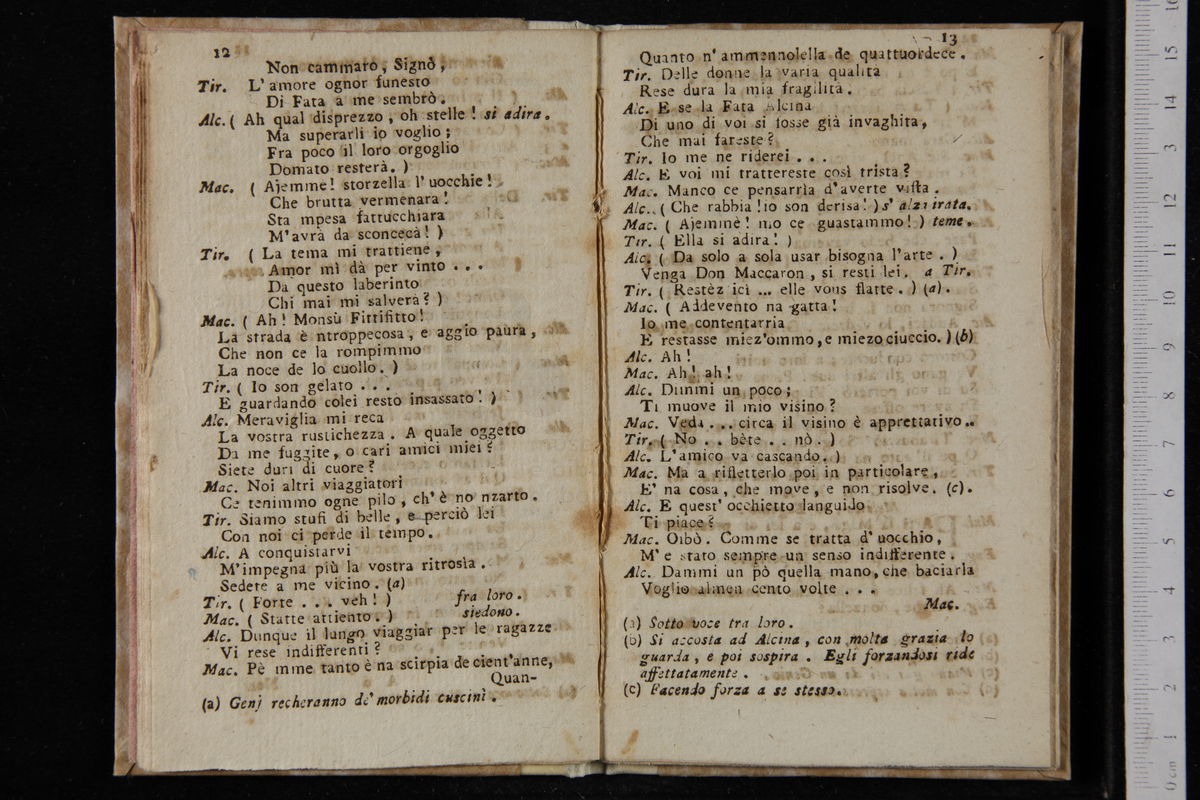 12
Non cammaro, Signò,
Tir. L'amore ognor funesto
Di Fata a me sembrò.
Alc. ( Ah qual disprezzo, oh stelle! si adira.
Ma superarli io voglio;
Fra poco il loro orgoglio
Domato resterà. )
Mac. ( Ajemme! storzella l'uocchie!
Che brutta vermenara!
Sta mpesa fattucchiara
M'avrà da sconcecà! )
Tir. ( La tema mi trattiene,
Amor mi dà per vinto ...
Da questo laberinto
Chi mai mi salverà? )
Mac. ( Ah! Monsù Fittifitto!
La strada è ntroppecosa, e aggio paura,
Che non ce la rompimmo
La noce de lo cuollo. )
Tir. ( Io son gelato ...
E guardando colei resto insassato! )
Alc. Meraviglia mi reca
La vostra rustichezza. A quale oggetto
Da me fuggite, o cari amici miei?
Siete duri di cuore?
Mac. Noi altri viaggiatori
Ce tenimmo ogne pilo, ch'è no nzarto.
Tir. Siamo stufi di belle, e perciò lei
Con noi ci perde il tempo.
Alc. A conquistarvi
M'impegna più la vostra ritrosia.
Sedete a me vicino. (a)
Tir. ( Forte ... veh! ) fra loro.
Mac. ( Statte attiento. ) siedono.
Alc. Dunque il lungo viaggiar per le ragazze
Vi rese indifferenti?
Mac. Pè mme tanto è na scirpia de cient'anne,
Quan-
(a) Genj recheranno de' morbidi cuscini.
13
Quanto n'ammennolella de quattuordece.
Tir. Delle donne la varia qualità
Rese dura la mia fragilità.
Alc. E se la Fata Alcina
Di uno di voi si fosse già invaghita,
Che mai fareste?
Tir. Io me ne riderei ...
Alc. E voi mi trattereste così trista?
Mac. Manco ce pensarria d'averte vista.
Alc. ( Che rabbia! io son derisa! ) s'alza irata.
Mac. ( Ajemmè! mo ce guastammo! ) teme.
Tir. ( Ella si adira! )
Alc. ( Da solo a sola usar bisogna l'arte. )
Venga Don Maccaron, si resti lei. a Tir.
Tir. ( Restèz ici ... elle vous flatte. ) (a).
Mac. ( Addevento na gatta!
Io me contentarria
E restasse miez'ommo, e miezo ciuccio. ) (b)
Alc. Ah!
Mac. Ah! ah!
Alc. Dimmi un poco;
Ti muove il mio visino?
Mac. Veda ... circa il visino è apprettativo..
Tir. ( No .. bète .. nò. )
Alc. L'amico va cascando. )
Mac. Ma a rifletterlo poi in particolare,
E' na cosa, che move, e non risolve. (c).
Alc. E quest'occhietto languido
Ti piace?
Mac. Oibò. Comme se tratta d'uocchio,
M'e stato sempre un senso indifferente.
Alc. Dammi un pò quella mano, che baciarla
Voglio almen cento volte ...
Mac.
(a) Sotto voce tra loro.
(b) Si accosta ad Alcina, con molta grazia lo
guarda, e poi sospira. Egli forzandosi ride
affettatamente.
(c) Facendo forza a se stesso.